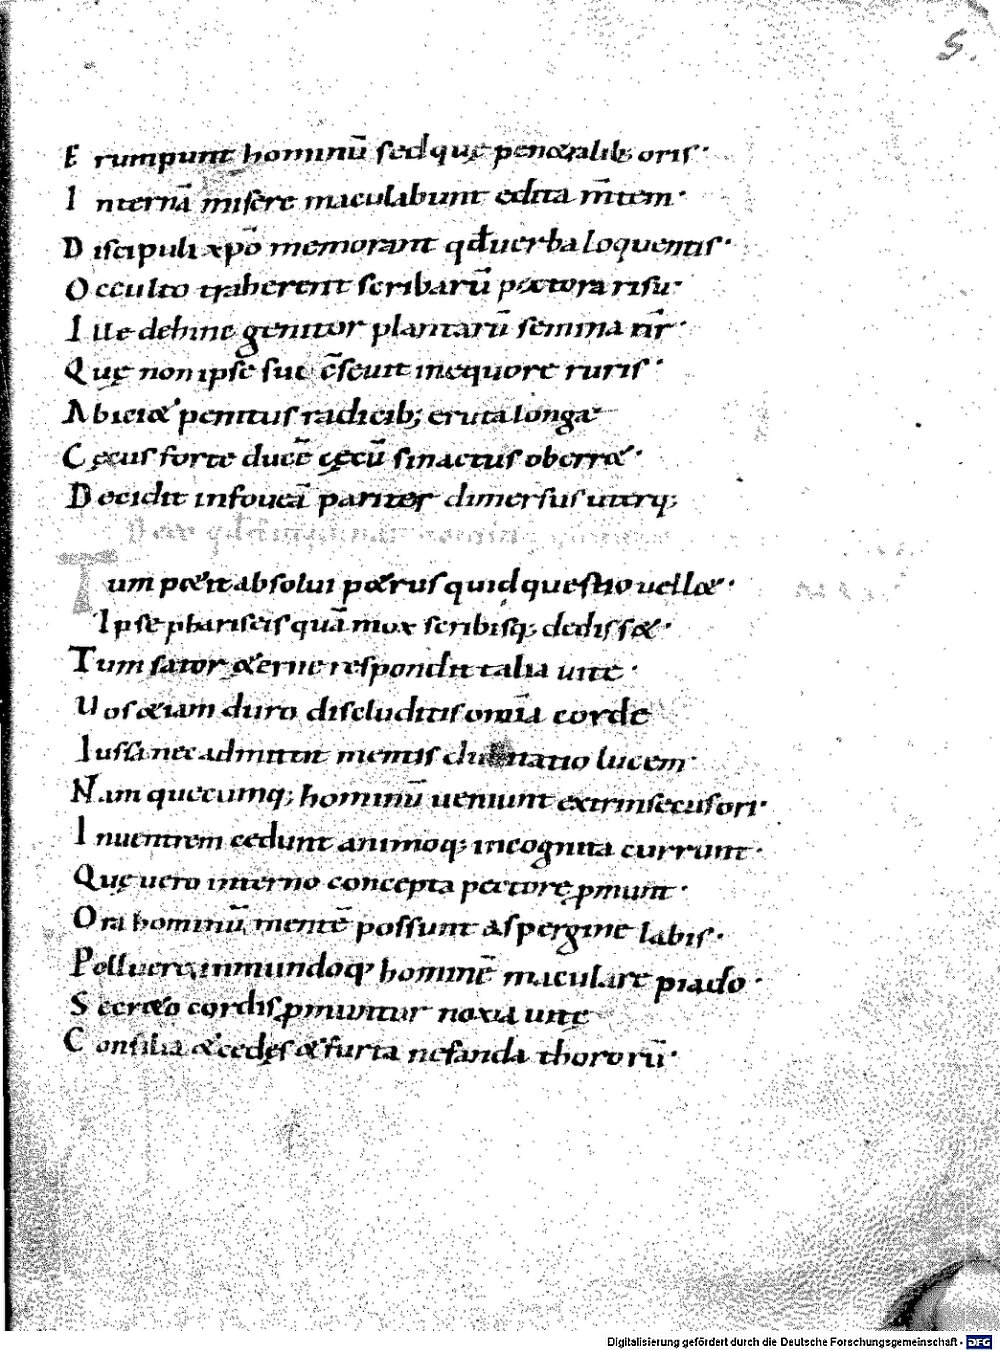 5.
E rumpunt hominū sed quę penetralib; oris·
I nternā misere maculabunt edita m̄tem·
D iscipuli xp̄o memorant qđ uerba loquentis·
O cculto traherent scribarū pectora risu·
I lle dehinc genitor plantarū semina nr̄·
Q uę non ipse sui c̄seuit inequore ruris·
A biciet penitus radicib; eruta longe·
C ęcus forte ducē cęcū si nactus oberret·
D ecidit infoueā pariter dimersus uterq;
Tum petiit absolui petrus quid questio uellet·
Ipse phariseis quā mox scribisq; dedisset·
Tum sator ęterne respondit talia uitę·
Uos etiam duro discluditis omīa corde
Iussa nec admittit mentis dubitatio lucem·
Nam quecumq; hominū ueniunt extrinsecus ori·
I nuentrem cedunt animoq; incognita currunt·
Quę uero interno concepta pectore p̱munt·
Ora hominū mentē possunt aspergine labis·
Polluere inmundoq; hominē maculare piaclo·
S ecreto cordis p̱muntur noxia uitę
C onsilia & cedęs & furta nefanda thororū·
Digitalisierung gefördert durch die Deutsche Forschungsgemeinschaft - DFG